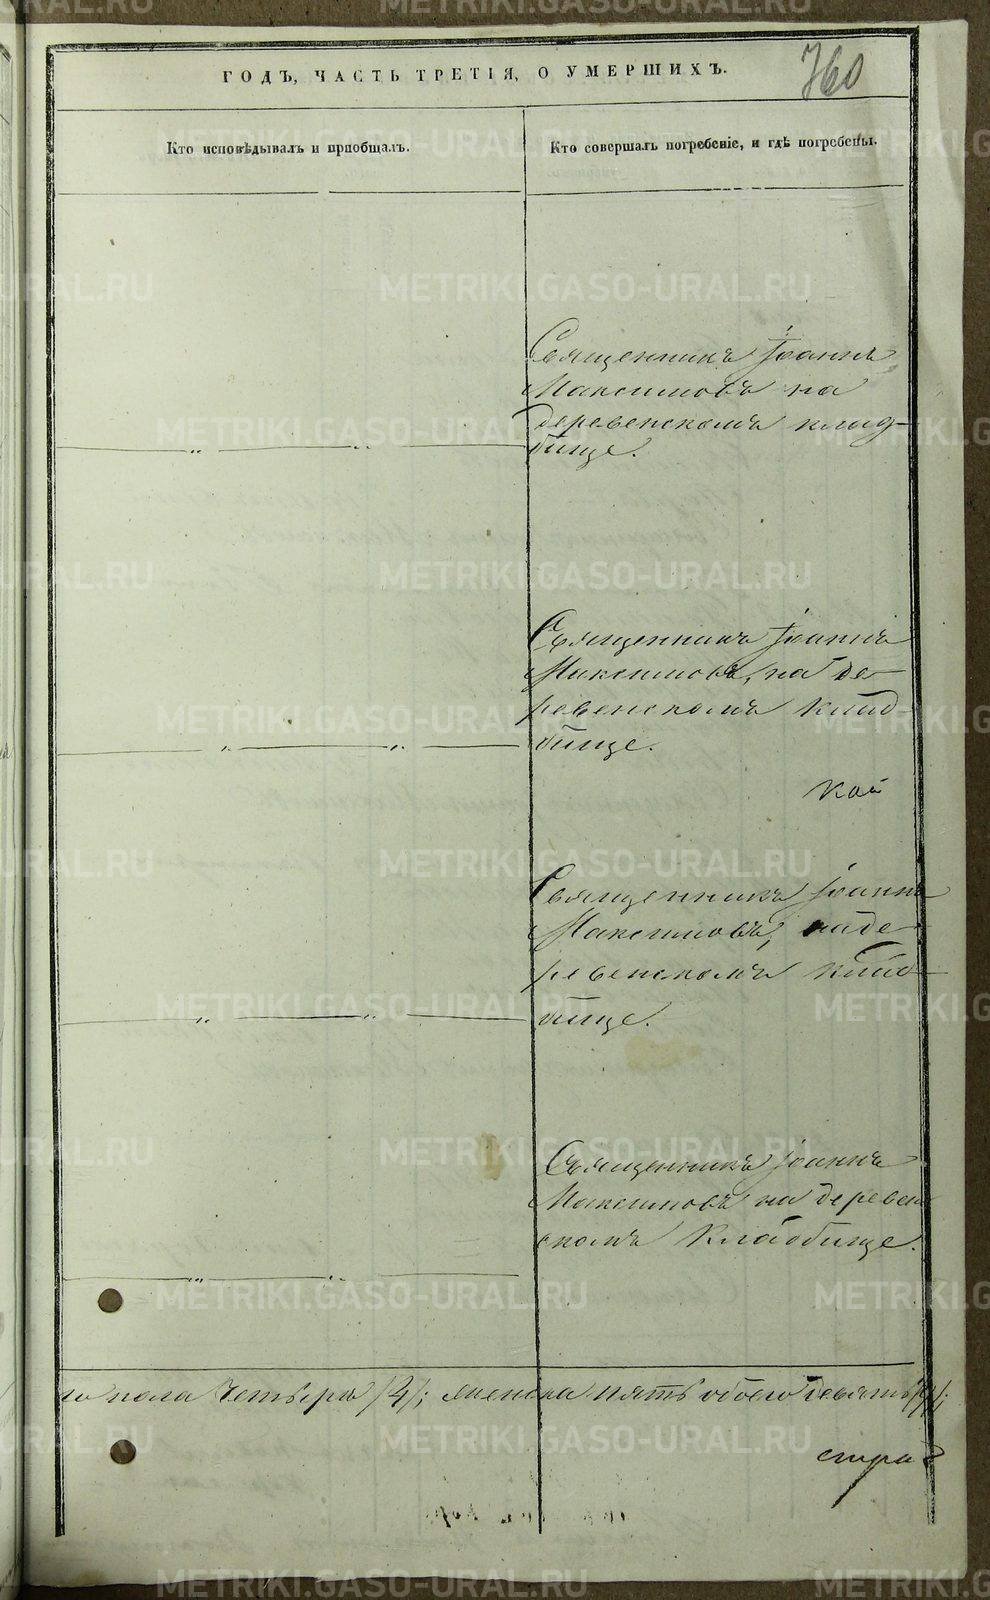 ГОДЪ, ЧАСТЬ ТРЕТІЯ, О УМЕРШИХЪ.
760
Кто исповѣдывалъ и пріобщалъ.
Кто совершалъ погребеніе, и гдѣ погребены.
Священникъ Іоаннъ
Максимовъ на
деревенскомъ клад-
бище.
Священникъ Іоаннъ
Максимовъ, на де-
ревенскомъ клад-
бище.
Священникъ Іоаннъ
Максимовъ, на де-
ревенскомъ клад-
бище.
Священникъ Іоаннъ
Максимовъ на деревен
скомъ кладбище.
го пола четыри /4/; женска пять обоего девять /9/;
METRIKI.GASO-URAL.RU